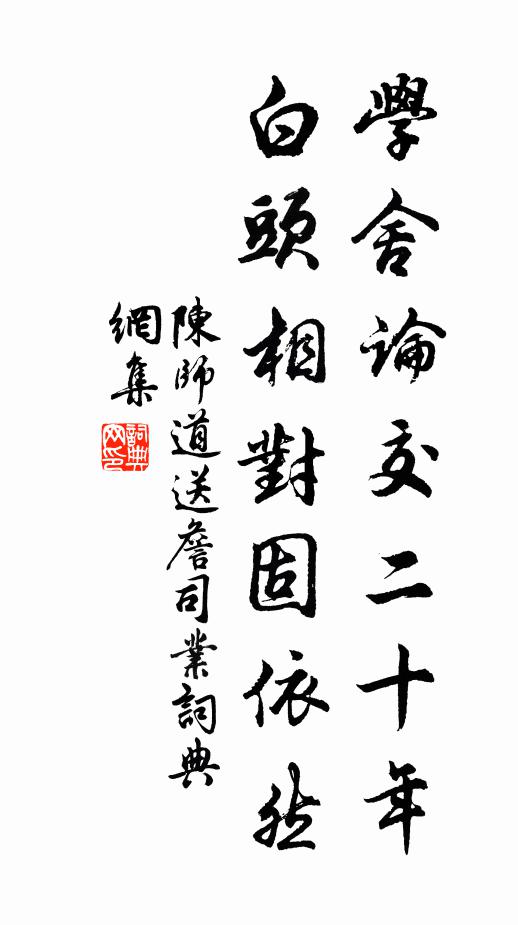 學舍論交二十年
白頭相對固依然
陳師道送詹司業詞典
網集
詞典
网印